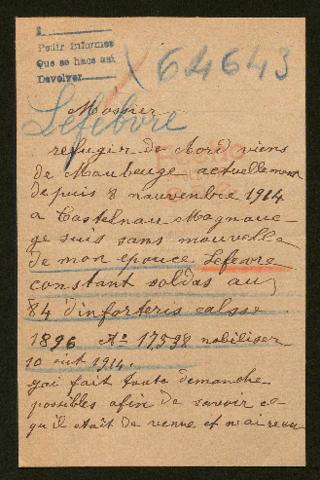 Pedir informes
Que se hace asi
Devolver
64643
Lefebvre
Mosier
refugir de Nord viens
de Maubeuge actuellement
depuis 8 nouvenbre 1914
a Castelnau Magnoac
ge suis sans nouvelle
de mon epouce Lefevre
constant soldas au
84 d'inforteris calsse
1896 No 17598 nobiliser
10 out 1914.
gai fait toute demanche
possibles afin de savoir ce
qu'il etait de venue et n'ai recu